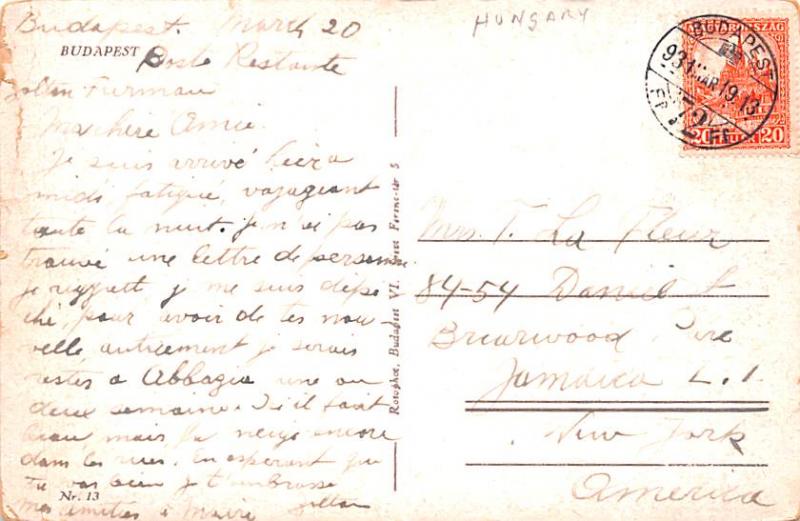 Budapest. March 20
BUDAPEST
Poste Restante
Zoltan Furman
Ma chère Amie.
Je suis arrivé hier a
midi fatiqué, vayageant
toute la nuit. Je n'ai pas
trouvé une lettre de personne
je regrett, j me suis dépe
ché, pour avoir de tes nou-
velle, autriement je serais
restes a Abbazia une ou
deux semaine. Ici il fait
beau, mais la neige encore
dans les rues. En esperant que
tu vas bien je t'embrasse
Nr. 13
mes amities a Marie Zoltan
Rotophot, Budapest VI. Ferenc-tér 5
HUNGARY
MAGYARORSZÁG
20 20
BUDAPEST
931 MAR 19. 13
72
Mrs. T. La Fleur
84-54 Daniel St
Briarwood
Jamaica L. I.
New York
America